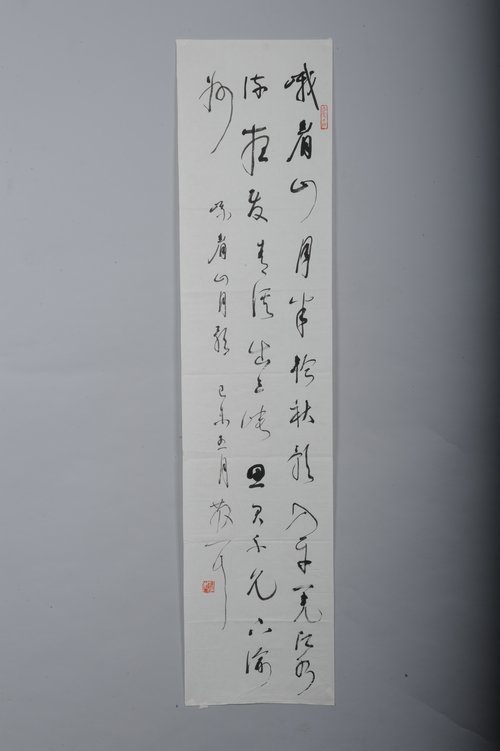 峨眉山月半輪秋影入平羌江水
流夜發清溪向三峽思君不見下渝
州
峨眉山月歌 己未五月 散耳